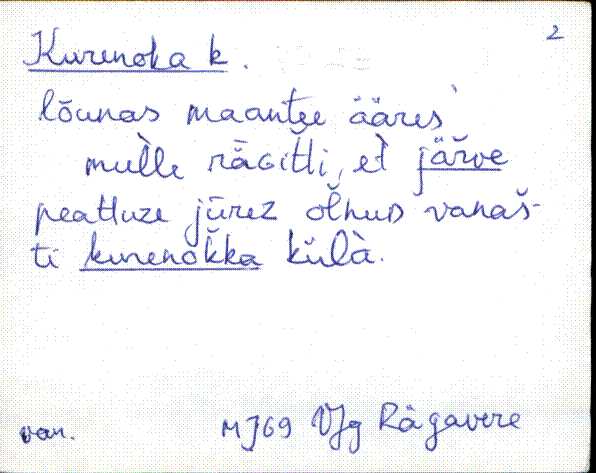 2
Kurenoka k.
lõunas maantee ääres
mulle rāGitti, et järve
peatuze jūrez olnuD vanas-
ti kurenokka külà.
van. MJ69 VJg Rägavere